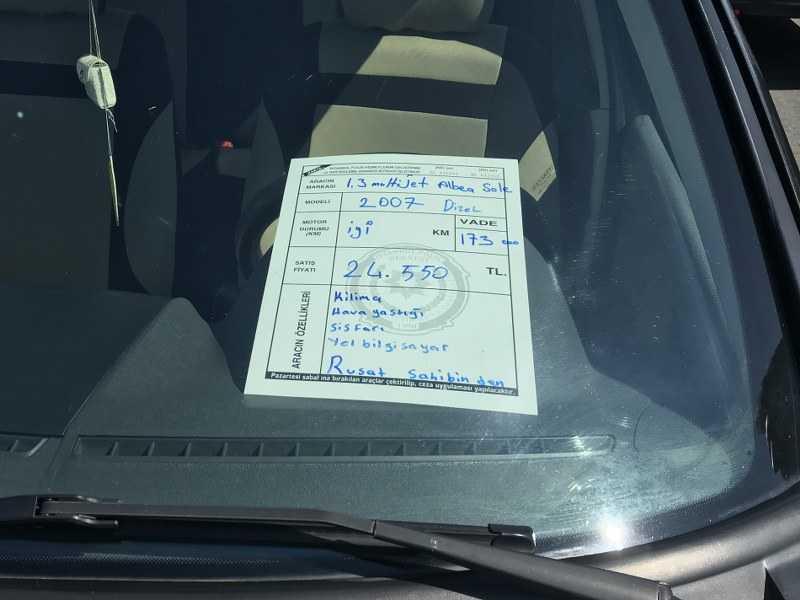 ARACIN MARKASI 1.3 multiJet Albea Sole
MODELİ 2007 Dizel
MOTOR DURUMU (KM) iyi KM VADE 173 000
SATIŞ FİYATI 24.550 TL.
ARACIN ÖZELLİKLERİ
Kilima
Hava yastığı
Sis Farı
Yol bilgisayar
Rusat Sahibinden
Pazartesi sabahına bırakılan araçlar çektirilip, ceza uygulaması yapılacaktır.